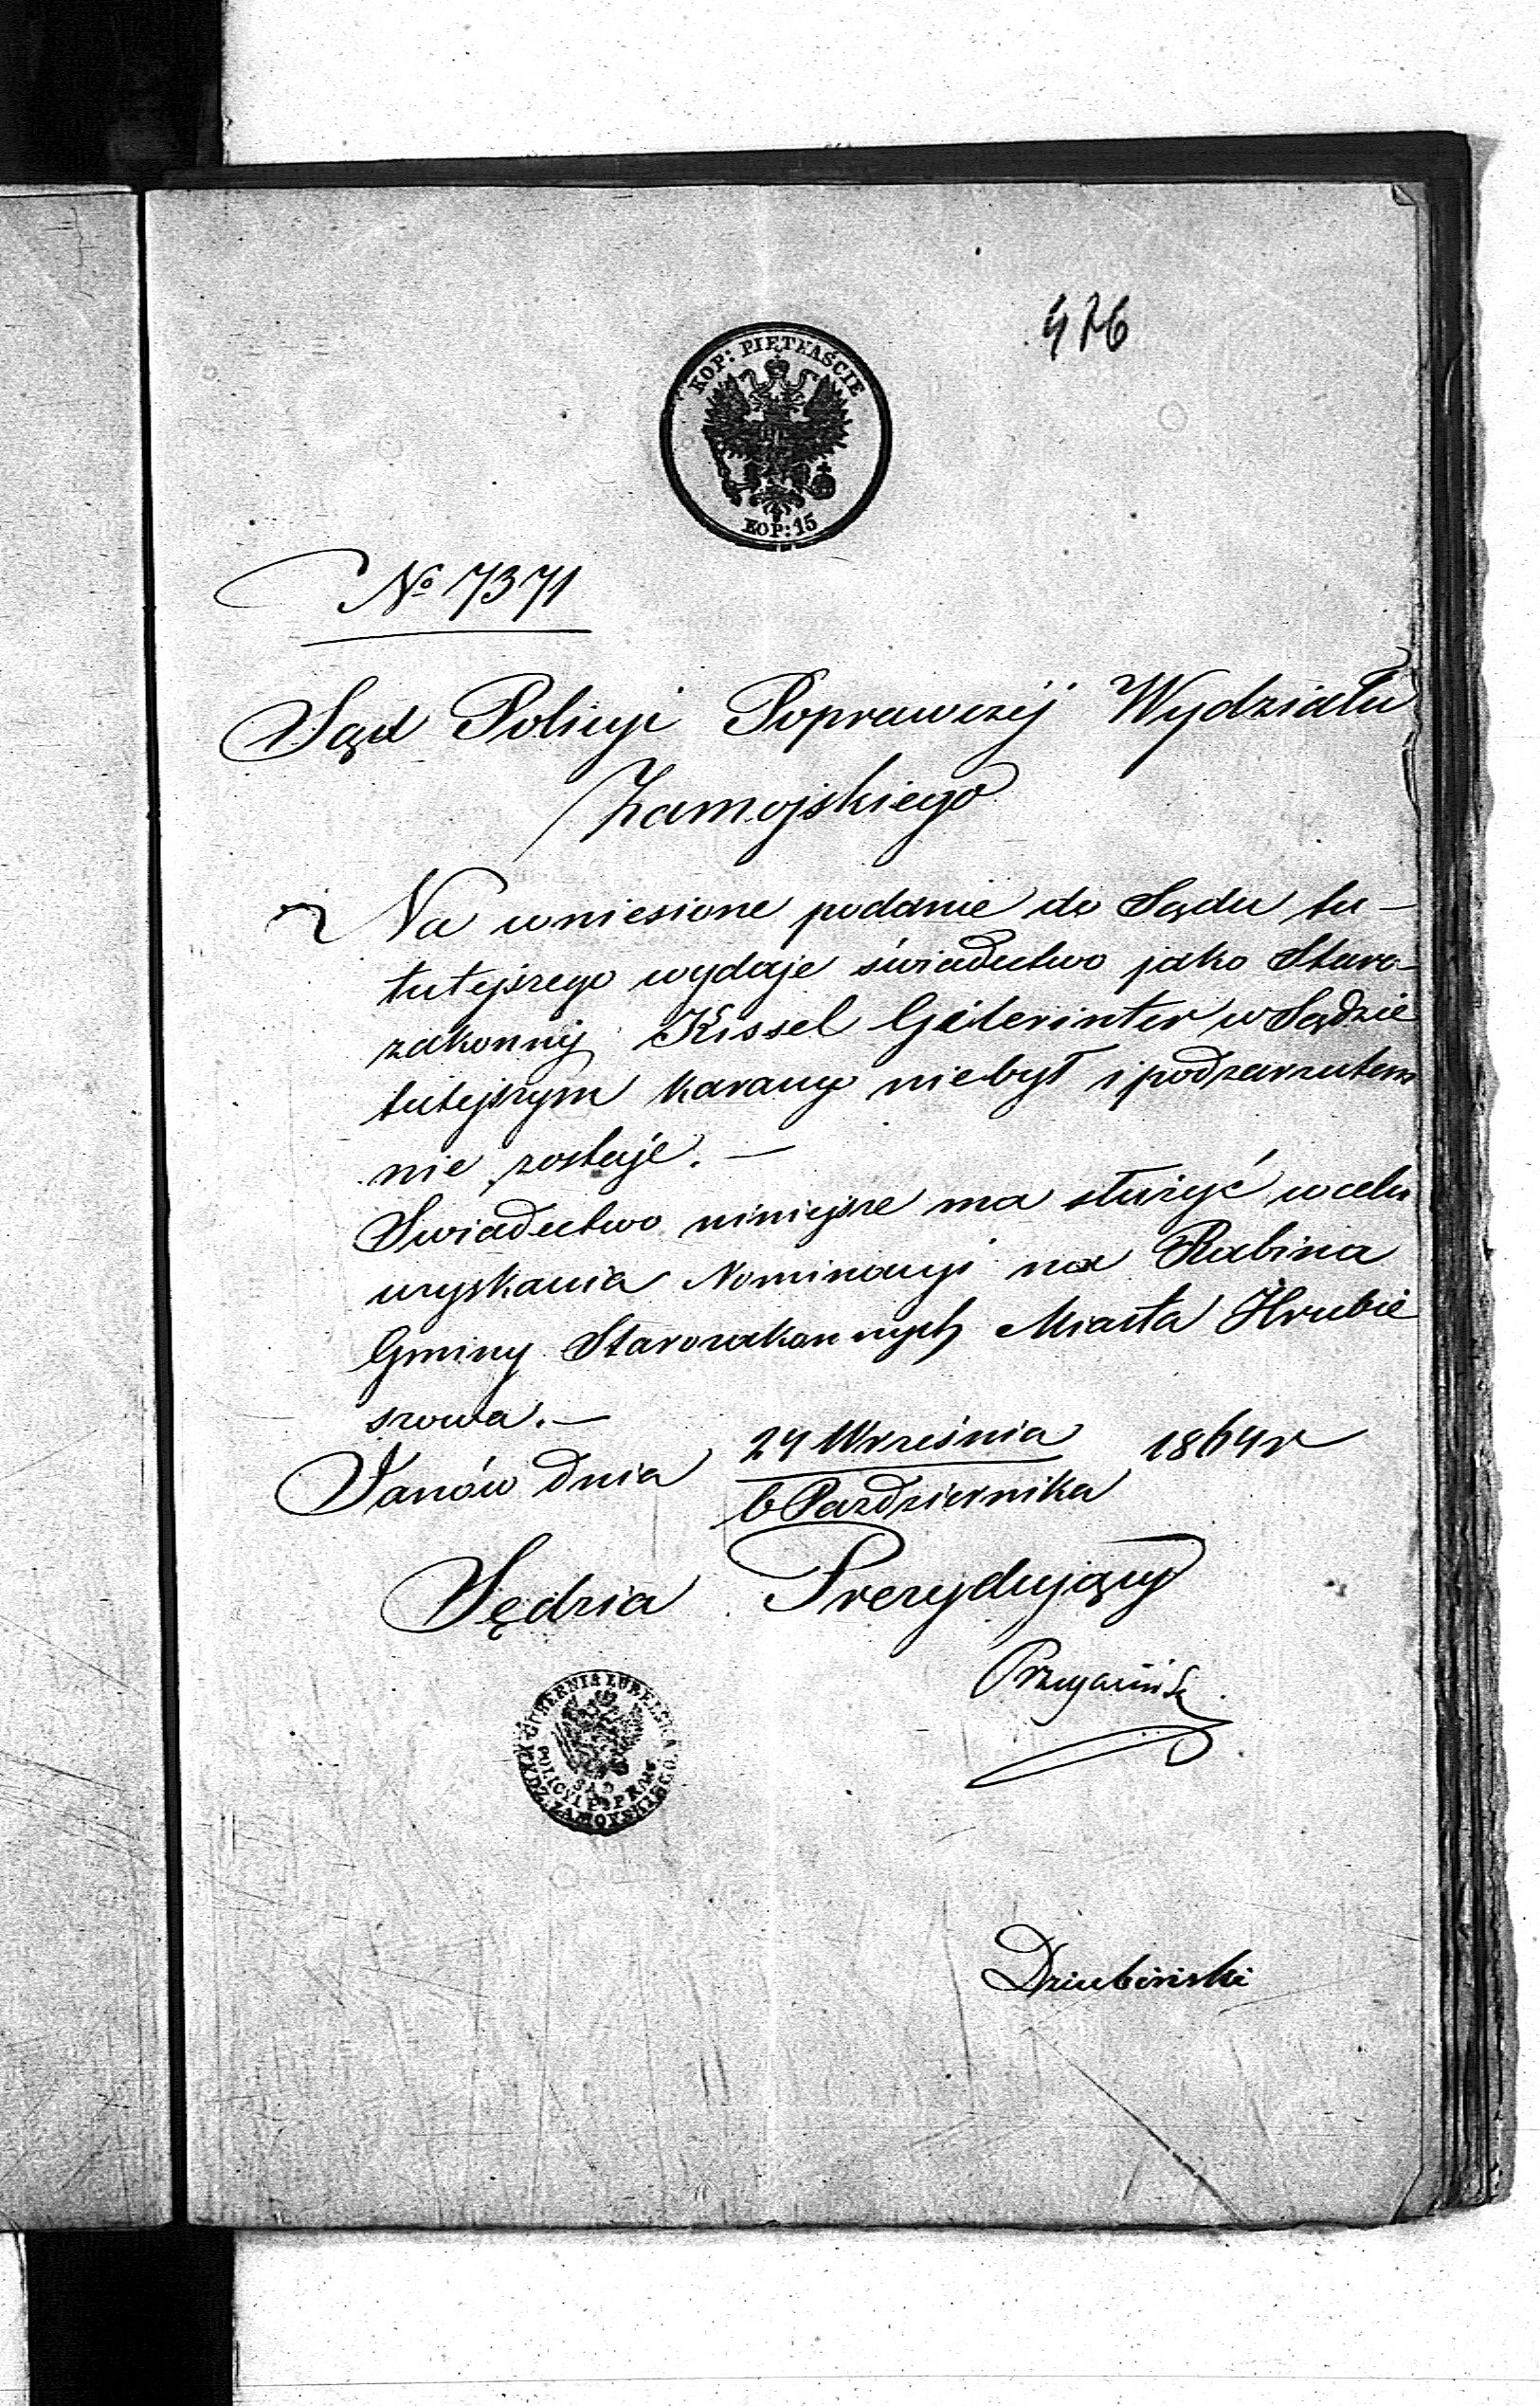 476
KOP: PIĘTNAŚCIE
KOP: 15
No 7371
Sąd Policyi Poprawczéj Wydziału
Zamojskiego
Na wniesione podanie do Sądu tu-
tutejszego wydaje świadectwo jako Staro-
zakonny Kissel Geterinter w Sądzie
tutejszym karany niebył i podzarzutem
nie zostaje. —
Swiadectwo niniejsze ma służyć w celu
uzyskania Nominacyi na Rabina
Gminy Starozakonnych Miasta Hrubie
szowa. —
Janów dnia 24 Września 1864 r
6 Października
Sędzia Prezydujący
GUBERNIA LUBELSKA
SĄD
POLICYI POPRAW:
WYDZ. ZAMOYSKIEGO
Dziubiński